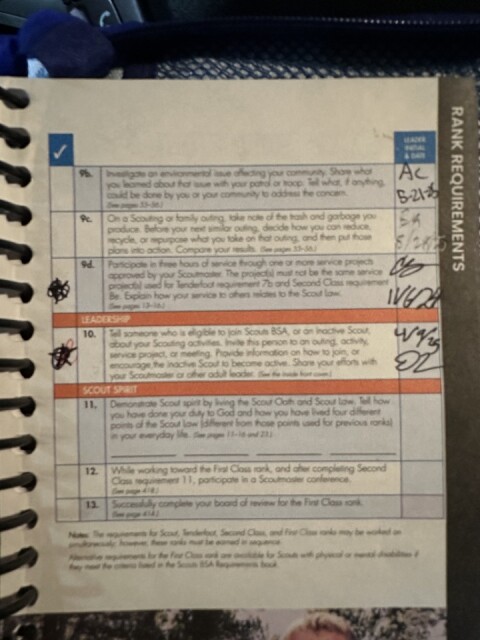 RANK REQUIREMENTS
✓
LEADER
INITIAL
& DATE
9b. Investigate an environmental issue affecting your community. Share what
you learned about that issue with your patrol or troop. Tell what, if anything,
could be done by you or your community to address the concern.
AC
9c. On a Scouting or family outing, take note of the trash and garbage you
produce. Before your next similar outing, decide how you can reduce,
recycle, or repurpose what you take on that outing, and then put those
plans into action. Compare your results.
9d. Participate in three hours of service through one or more service projects
approved by your Scoutmaster. The project(s) must not be the same service
project(s) used for Tenderfoot requirement 7b and Second Class requirement
8e. Explain how your service to others relates to the Scout Law.
LEADERSHIP
10. Tell someone who is eligible to join Scouts BSA, or an inactive Scout,
about your Scouting activities. Invite this person to an outing, activity,
service project, or meeting. Provide information on how to join, or
encourage the inactive Scout to become active. Share your efforts with
your Scoutmaster or other adult leader. (See the inside front cover.)
SCOUT SPIRIT
11. Demonstrate Scout spirit by living the Scout Oath and Scout Law. Tell how
you have done your duty to God and how you have lived four different
points of the Scout Law (different from those points used for previous ranks)
in your everyday life. (See pages 11–16 and 23.)
12. While working toward the First Class rank, and after completing Second
Class requirement 11, participate in a Scoutmaster conference.
(See page 418.)
13. Successfully complete your board of review for the First Class rank.
(See page 418.)
Notes: The requirements for Scout, Tenderfoot, Second Class, and First Class ranks may be worked on
simultaneously; however, these ranks must be earned in sequence.
Alternative requirements for the First Class rank are available for Scouts with physical or mental disabilities if
they meet the criteria listed in the Scouts BSA Requirements book.